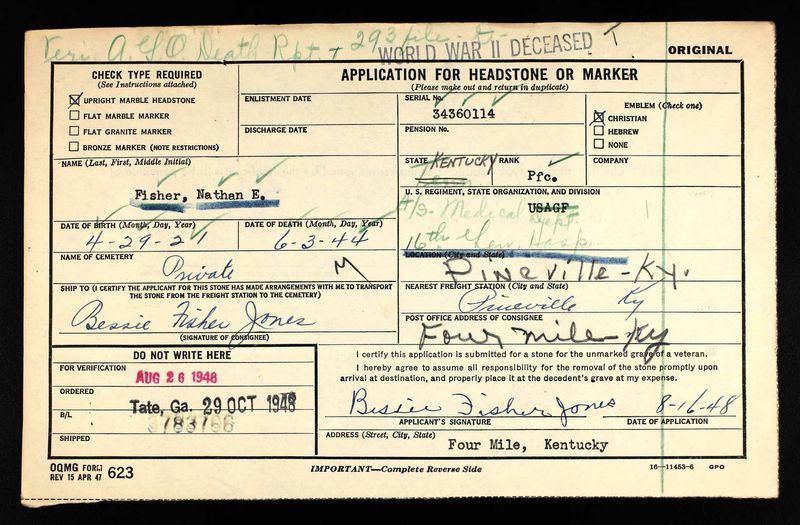 Veri. A.G.O Death Rpt. + 293 file - D-
WORLD WAR II DECEASED T
ORIGINAL
CHECK TYPE REQUIRED
(See Instructions attached)
UPRIGHT MARBLE HEADSTONE
FLAT MARBLE MARKER
FLAT GRANITE MARKER
BRONZE MARKER (NOTE RESTRICTIONS)
APPLICATION FOR HEADSTONE OR MARKER
(Please make out and return in duplicate)
ENLISTMENT DATE
DISCHARGE DATE
SERIAL No.
34360114
PENSION No.
EMBLEM (Check one)
CHRISTIAN
HEBREW
NONE
NAME (Last, First, Middle Initial)
Fisher, Nathan E.
STATE KENTUCKY
Tenn
RANK
Pfc.
COMPANY
U. S. REGIMENT, STATE ORGANIZATION, AND DIVISION
USAGF
Medical Dept.
16th Gen. Hosp.
DATE OF BIRTH (Month, Day, Year)
4-29-21
DATE OF DEATH (Month, Day, Year)
6-3-44
NAME OF CEMETERY
Private
M
LOCATION (City and State)
PINEVILLE-KY.
SHIP TO (I CERTIFY THE APPLICANT FOR THIS STONE HAS MADE ARRANGEMENTS WITH ME TO TRANSPORT
THE STONE FROM THE FREIGHT STATION TO THE CEMETERY)
Bessie Fisher Jones
(SIGNATURE OF CONSIGNEE)
NEAREST FREIGHT STATION (City and State)
Pineville Ky
POST OFFICE ADDRESS OF CONSIGNEE
Four mile-Ky
DO NOT WRITE HERE
FOR VERIFICATION
AUG 26 1948
ORDERED
Tate, Ga. 29 OCT 1948
B/L
SHIPPED
I certify this application is submitted for a stone for the unmarked grave of a veteran.
I hereby agree to assume all responsibility for the removal of the stone promptly upon
arrival at destination, and properly place it at the decedent's grave at my expense.
Bessie Fisher Jones 8-16-48
APPLICANT'S SIGNATURE DATE OF APPLICATION
ADDRESS (Street, City, State)
Four Mile, Kentucky
OQMG FORM 623
REV 15 APR 47
IMPORTANT—Complete Reverse Side
16—11453-6 GPO